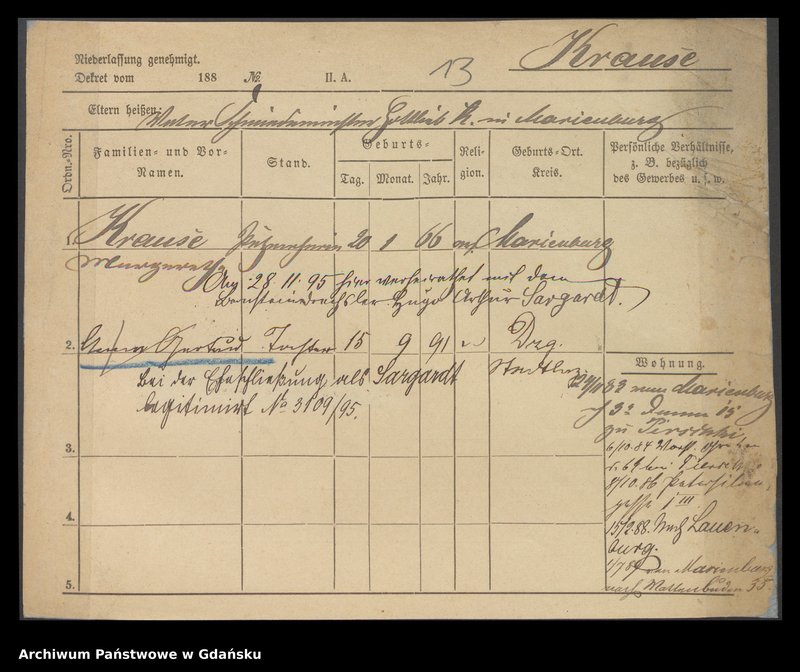 Niederlassung genehmigt.
Dekret vom 188 No. II. A. 13 Krause
Eltern heißen: Vater Schmiedemeister Gottlieb K. in Marienburg
Ordn.-Nro.
Familien- und Vor-
Namen.
Stand.
Geburts-
Tag. Monat. Jahr.
Reli-
gion.
Geburts-Ort.
Kreis.
Persönliche Verhältnisse,
z. B. bezüglich
des Gewerbes u. s. w.
1. Krause 20 1 66 Marienburg
Margarethe
28.11.95 hier verheirathet mit dem
Bernsteindrechsler Hugo Arthur Sargardt.
2. Gertrud Tochter 15 9 91 Dzg.
bei der Eheschließung als Sargardt
legitimirt No 3109/95.
Wohnung.
83 von Marienburg
3t Damm 15
zu
6/10.84 Vorst.
8/10.86 Petersilien-
gasse I III
15/2.88. Nach Lauen-
burg.
von Marienburg
nach Mattenbuden 35.
3.
4.
5.
Archiwum Państwowe w Gdańsku